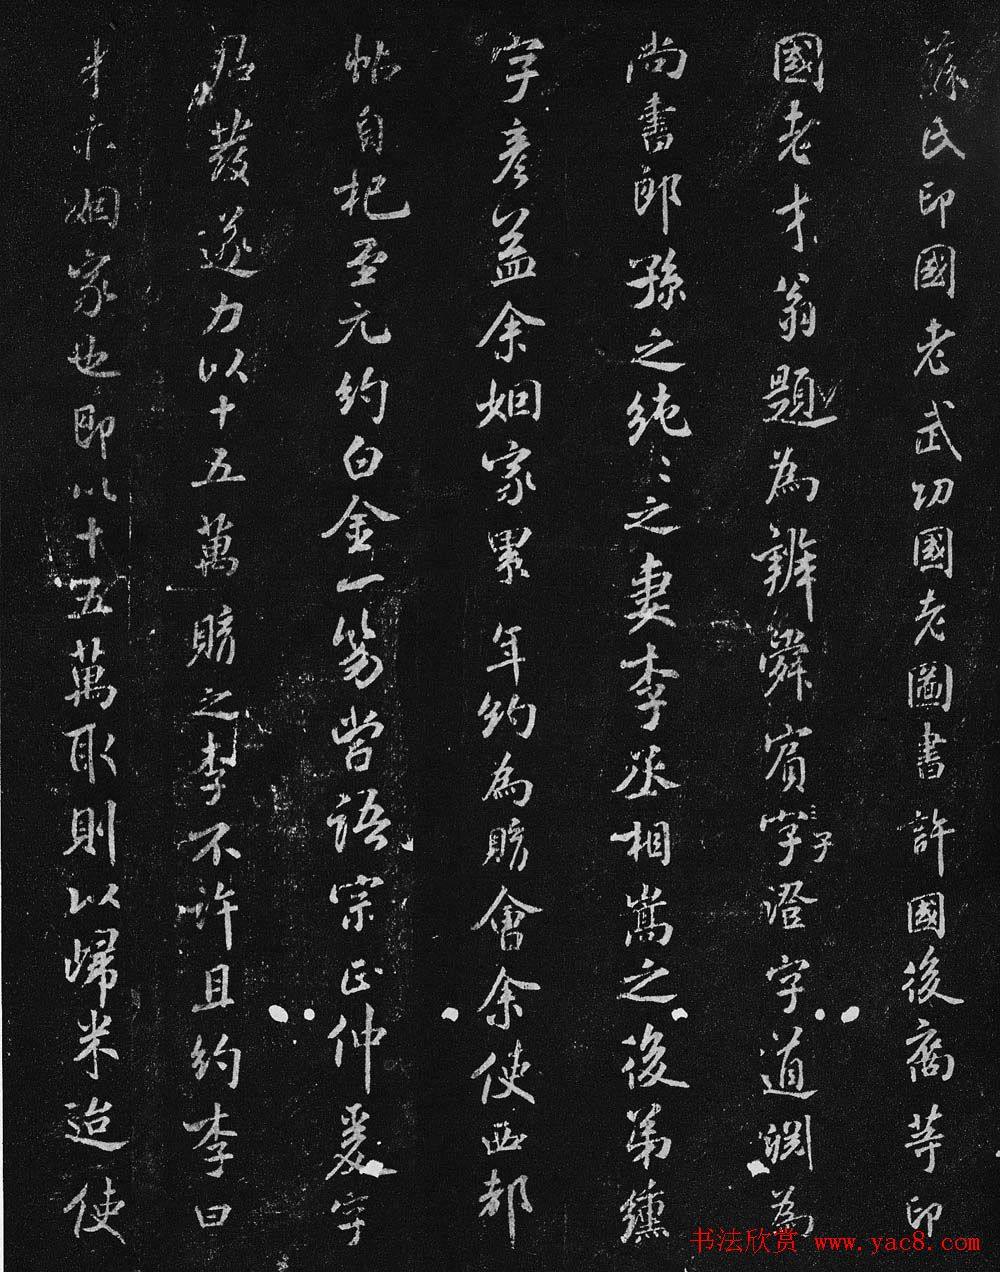 蘇氏印國老武功國老圖書許國後裔等印
國老才翁題為辨舜賓字子澄字道淵為
尚書郎孫之純〻之妻李丞相嵩之後弟纁
字彥益余姻家累年約為購會余使西都
帖自杞至元約白金一笏嘗語宗正仲爰字
君發遂力以十五萬購之李不許且約李曰
亦姻家也即以十五萬取則以歸米迨使
书法欣赏 www.yac8.com